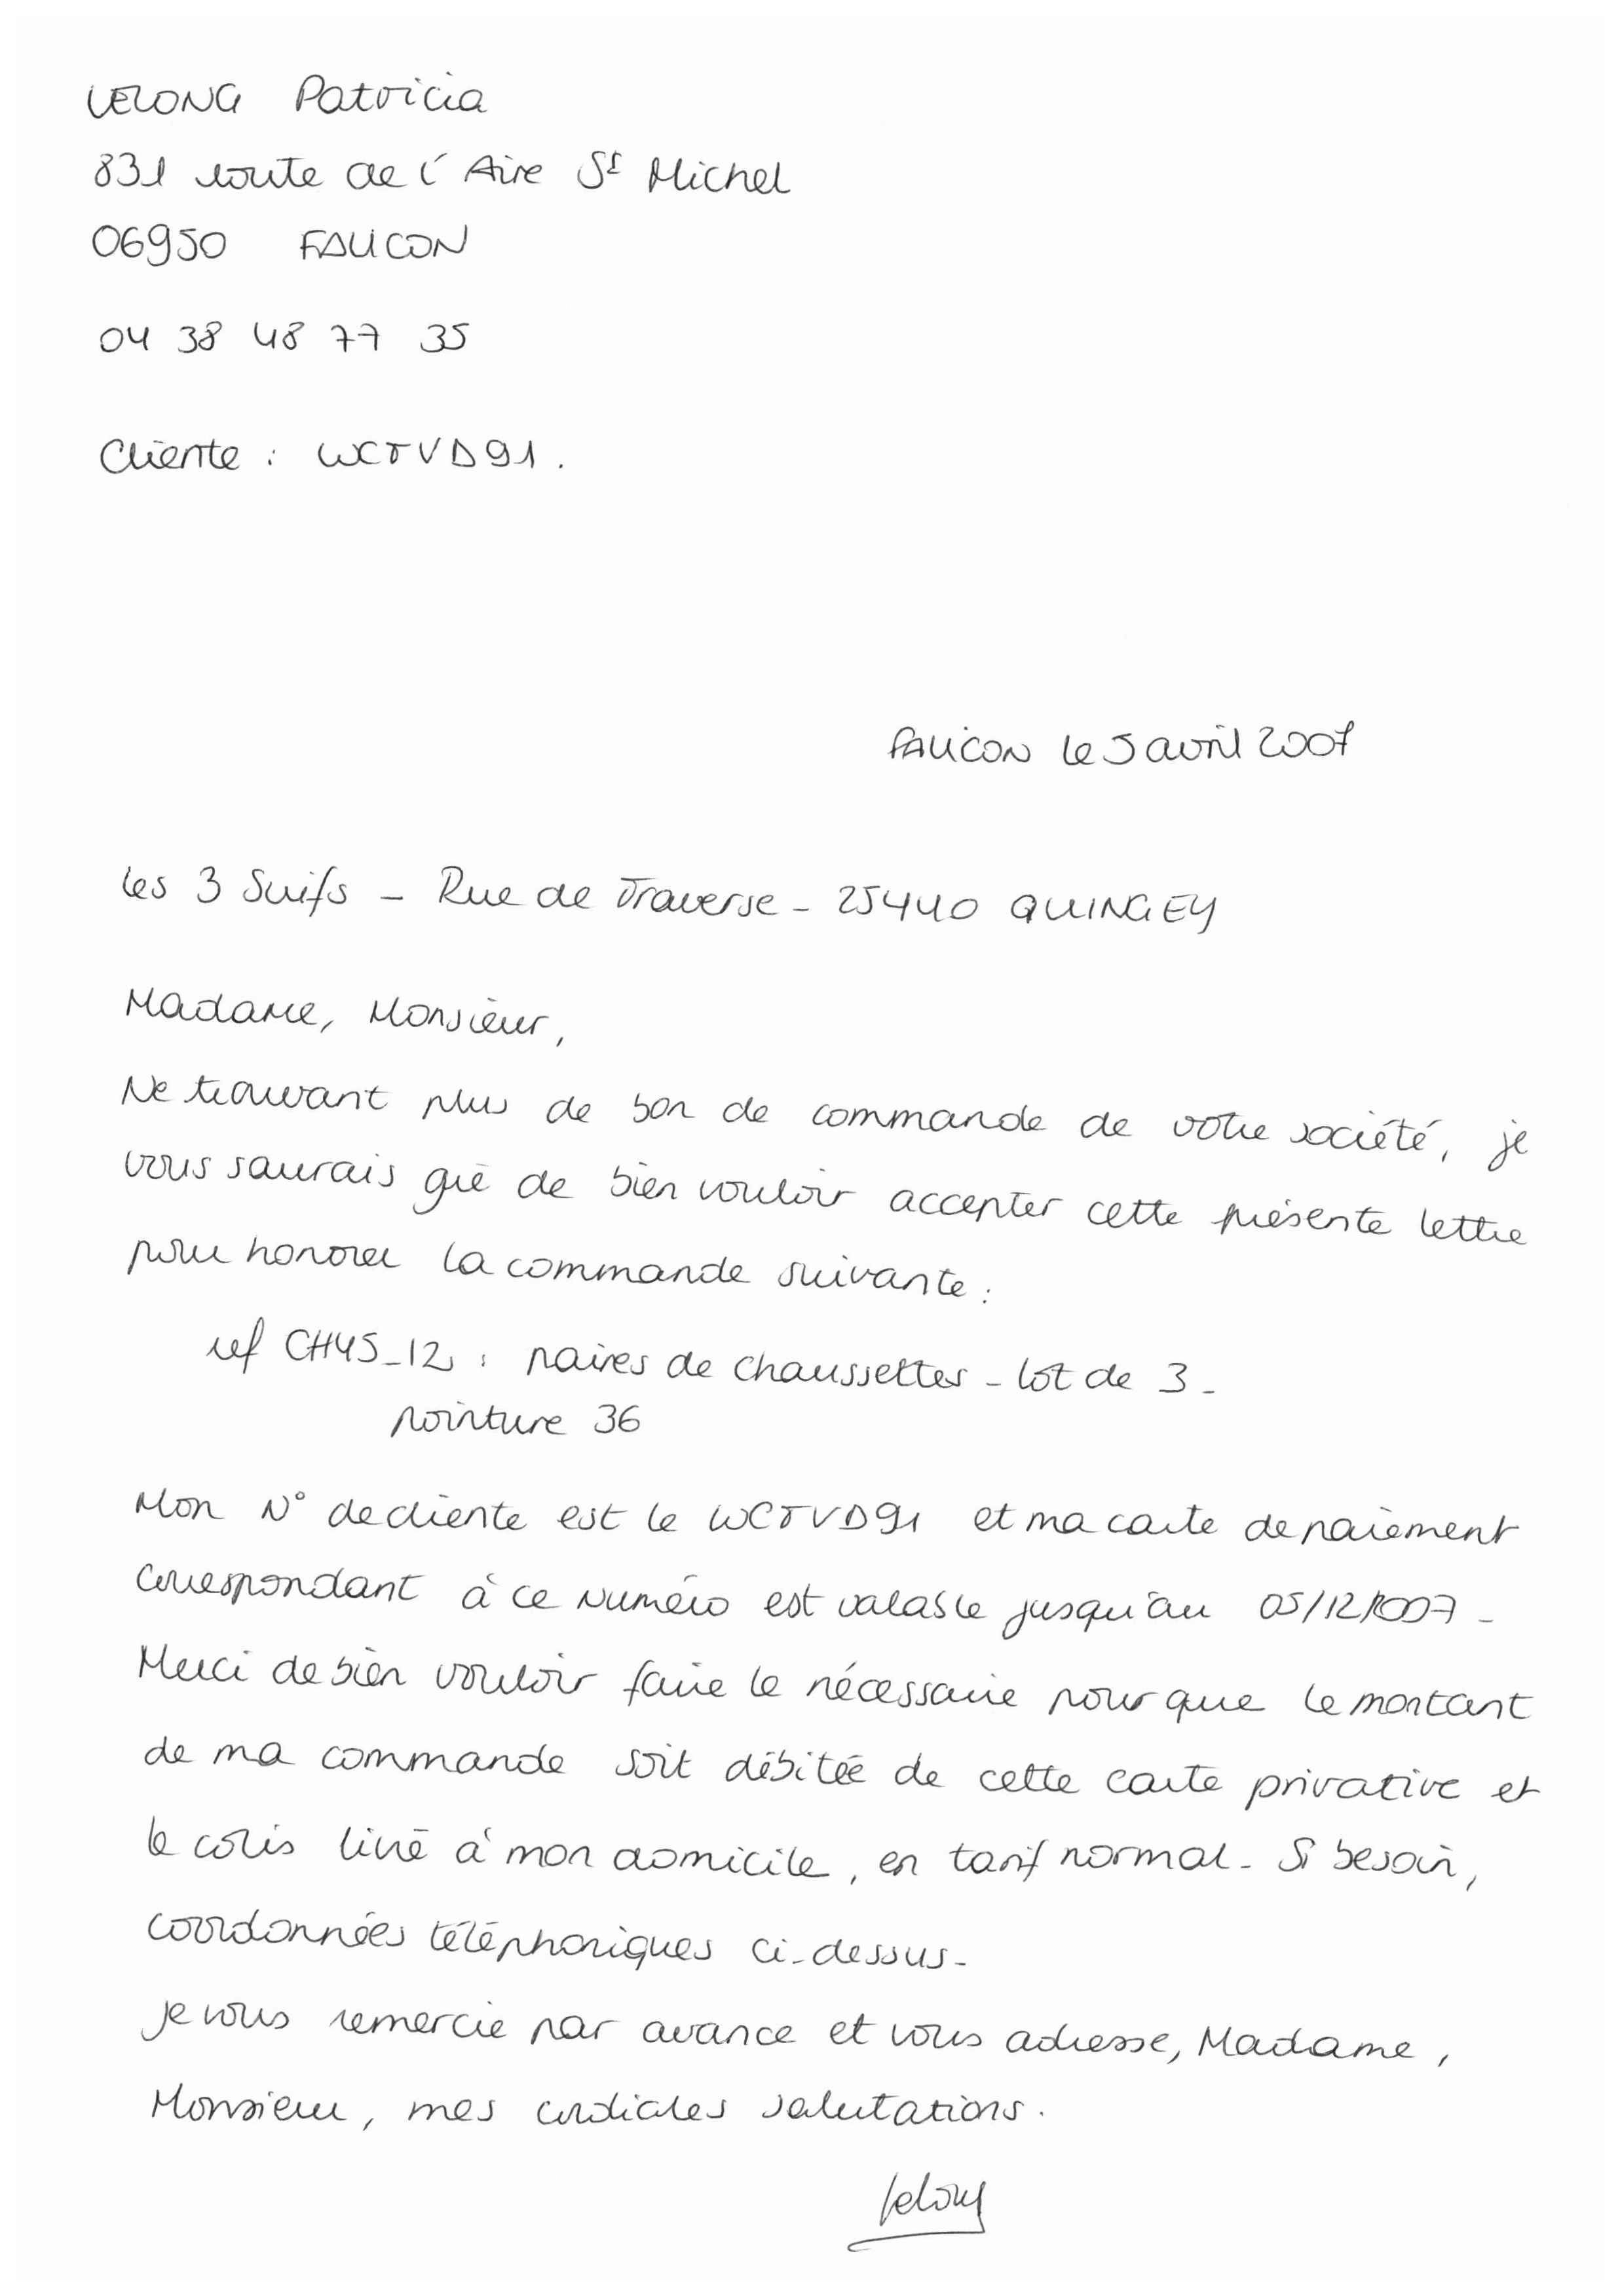 LELONG Patricia
831 route de l'Aire St Michel
06950 FALICON
04 38 48 77 35
Cliente : WCTVD91.
FALICON le 5 avril 2007
Les 3 Suifs - Rue de Traverse - 25440 QUINGEY
Madame, Monsieur,
Ne trouvant plus de bon de commande de votre société, je
vous saurais gré de bien vouloir accepter cette présente lettre
pour honorer la commande suivante :
ref CH45_12 : paires de chaussettes - lot de 3 -
pointure 36
Mon N° de cliente est le WCTVD91 et ma carte de paiement
correspondant à ce numéro est valable jusqu'au 05/12/2007 -
Merci de bien vouloir faire le nécessaire pour que le montant
de ma commande soit débitée de cette carte privative et
le colis livré à mon domicile, en tarif normal - Si besoin,
coordonnées téléphoniques ci-dessus -
Je vous remercie par avance et vous adresse, Madame,
Monsieur, mes cordiales salutations.
Lelong